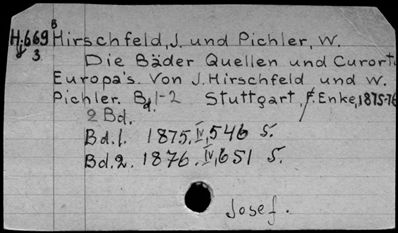 H.669 B Hirschfeld, J. und Pichler, W.
3.
Die Bäder Quellen und Curorte
Europa's. Von J. Hirschfeld und W.
Pichler. Bd. 1-2 Stuttgart, F. Enke, 1875-76
2 Bd.
Bd. 1. 1875. IV, 546 S.
Bd. 2. 1876. IV, 651 S.
Josef.